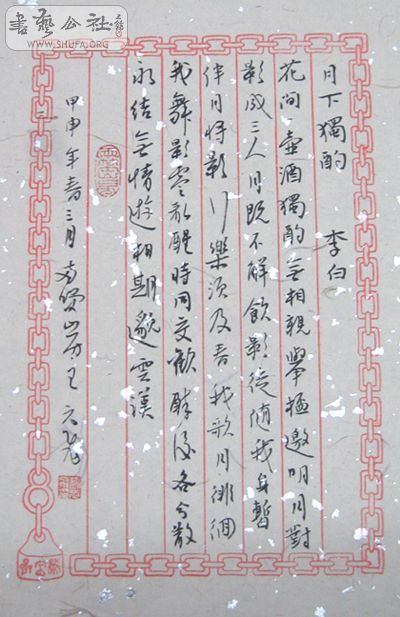 書藝公社
WWW.SHUFA.ORG
月下獨酌 李白
花间一壺酒獨酌無相親舉杯邀明月對
影成三人月既不解飲影徒隨我身暫
伴月將影行樂須及春我歌月徘徊
我舞影零亂醒時同交歡醉後各分散
永結無情遊相期邈雲漢
甲申年春三月